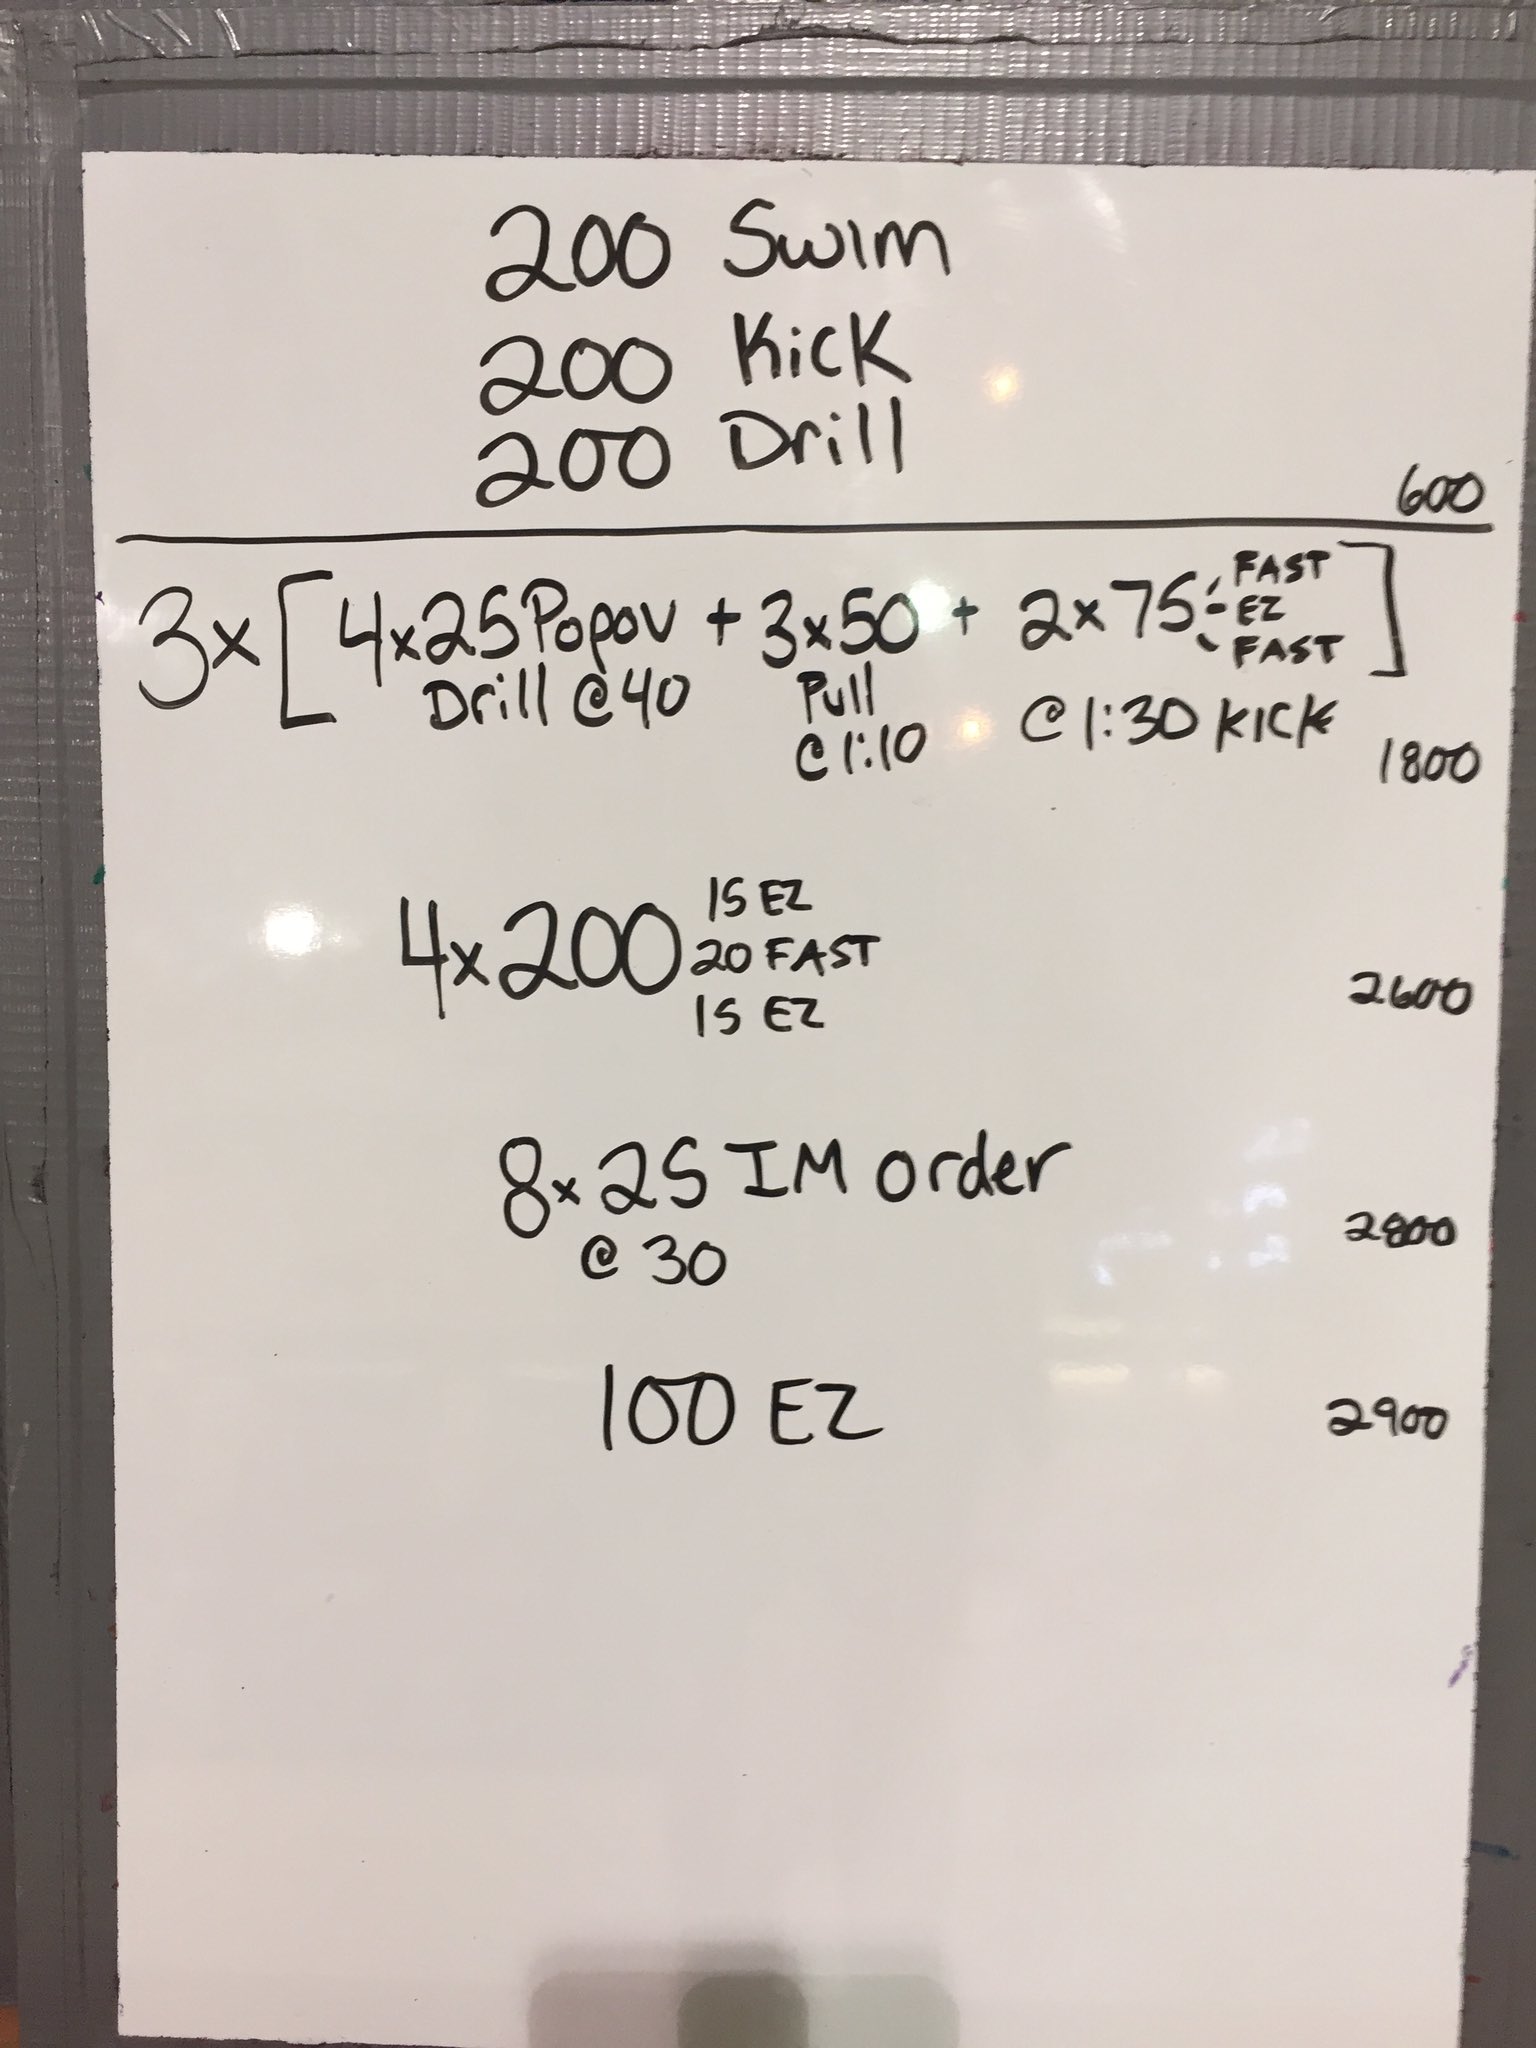 200 Swim
200 Kick
200 Drill
600
3x [4x25 Popov + 3x50 + 2x75 - FAST - EZ - FAST]
Drill @40 Pull @1:10 @1:30 KICK
1800
4x200 15 EZ
20 FAST
15 EZ
2600
8x25 IM order
@ 30
2800
100 EZ
2900